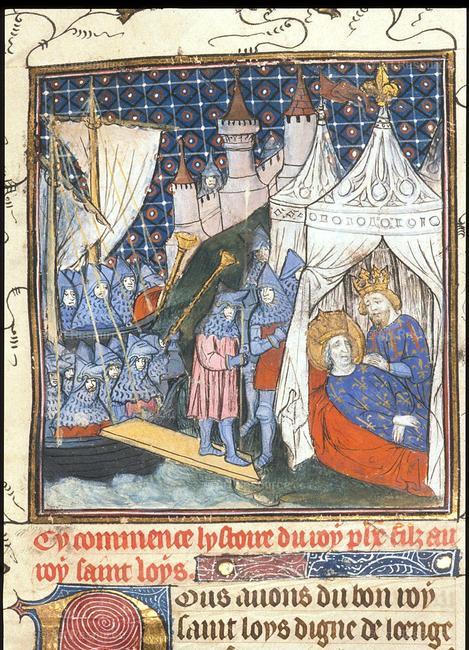 Cy commence lystoire du roy phe filz au
roy saint loys.
Ous auons du bon roy
saint loys digne de loenge